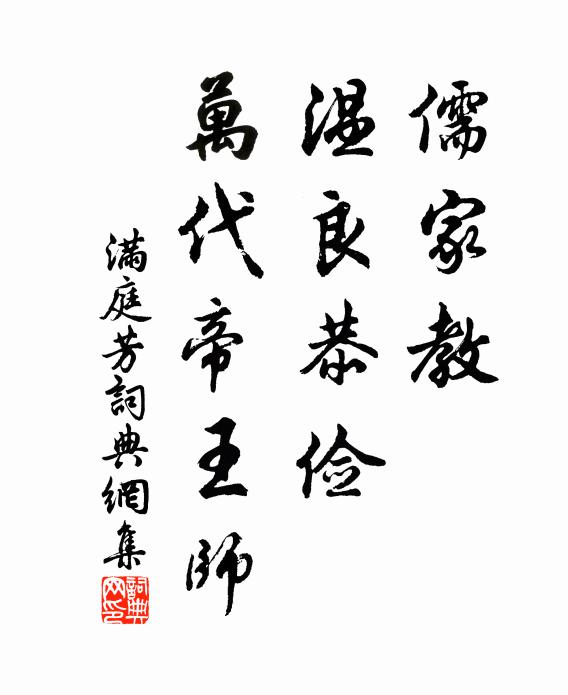 儒家教
温良恭俭
萬代帝王師
满庭芳詞典網集
詞典网印